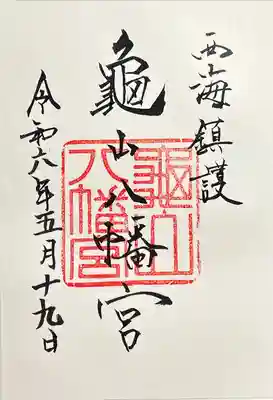 西海鎮護
龜山八幡宮
龜山
八幡宮
令和六年五月十九日